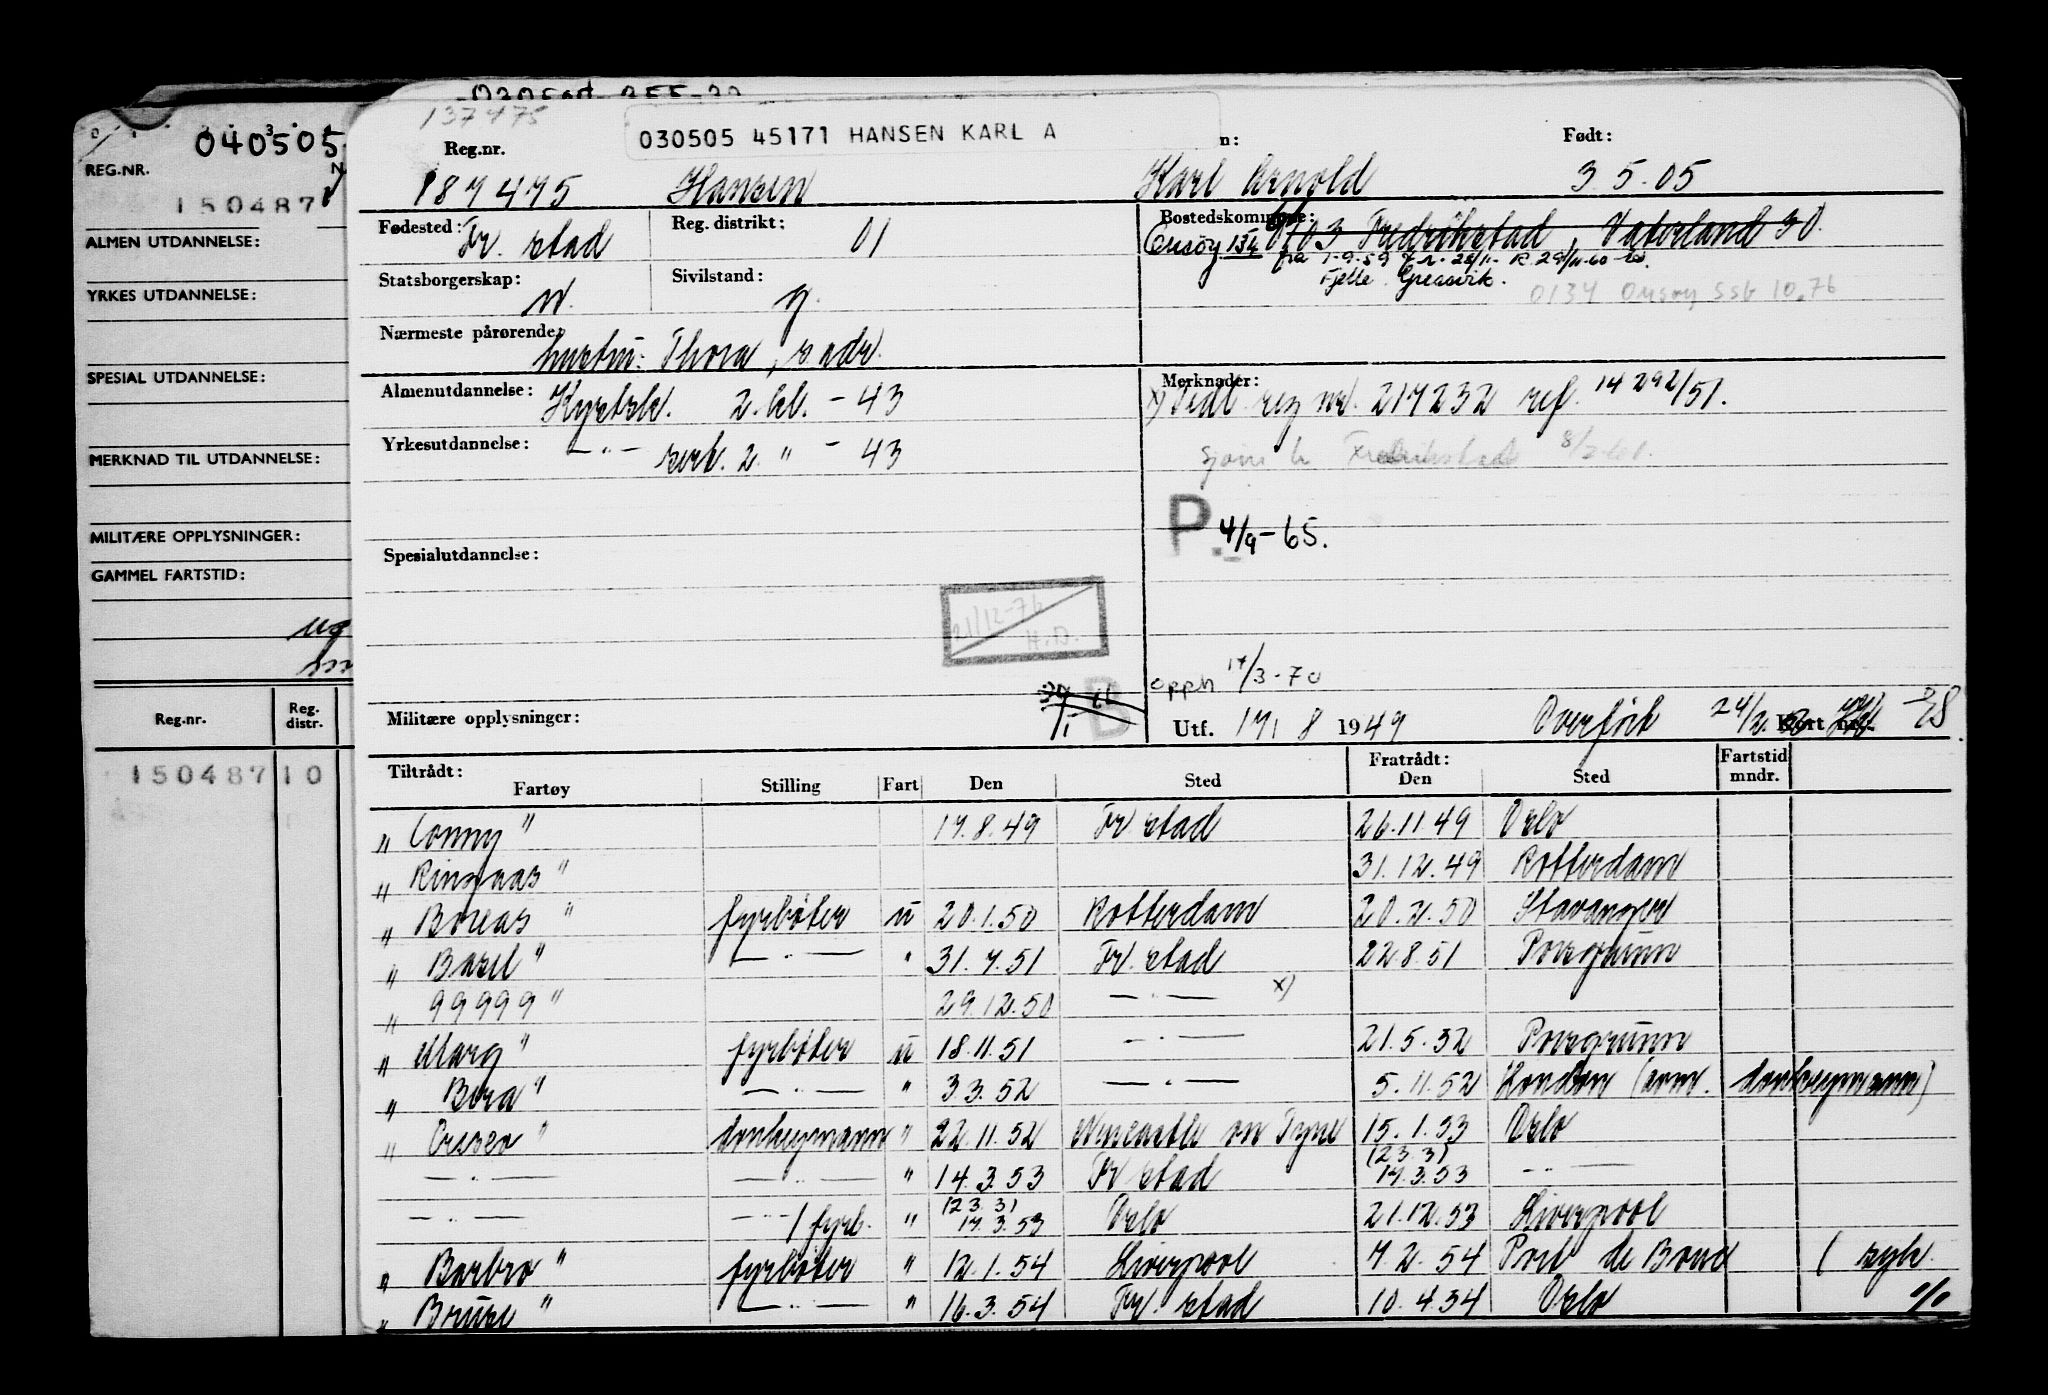 040505
REG.NR.
150487
ALMEN UTDANNELSE:
YRKES UTDANNELSE:
SPESIAL UTDANNELSE:
MERKNAD TIL UTDANNELSE:
MILITÆRE OPPLYSNINGER:
GAMMEL FARTSTID:
Reg.nr. Reg. distr.
150487 10
137475
030505 45171 HANSEN KARL A
Reg.nr. n: Født:
187475 Hansen Karl Arnold 3.5.05
Fødested: Fr. stad Reg. distrikt: 01 Bostedskommune: 0103 Fredrikstad, Vaterland 30.
Onsøy 134 fra 1-9-59
Fjelle Gressvik.
0134 Onsøy SSB 10.76
Statsborgerskap: N. Sivilstand: g.
Nærmeste pårørende: hustru: Thora, s. adr.
Almenutdannelse: Kystsk. 2. kl. - 43 Merknader: x) Tidl. reg nr. 217232 ref. 14292/51.
Yrkesutdannelse: — " — sert. 2. " - 43
Fredrikstad
P. 4/9-65.
Spesialutdannelse:
21/12-76
H.O.
opph 17/3-70
B
Militære opplysninger: Utf. 17/8 1949 Overført 24/2 Kort nr.
Tiltrådt: Fratrådt: Fartstid
Fartøy Stilling Fart Den Sted Den Sted mndr.
"Conny" 17.8.49 Fr stad 26.11.49 Oslo
"Ringaas" 31.12.49 Rotterdam
"Boreas" fyrbøter u 20.1.50 Rotterdam 20.2.50 Stavanger
"Basel" — " — " 31.7.51 Fr. stad 22.8.51 Porsgrunn
"99999" 29.12.50 — " — x)
"Marg" fyrbøter u 18.11.51 — " — 21.5.52 Porsgrunn
"Bera" — " — " 3.3.52 — " — 5.11.52 London (avm. donkeymann)
"Crisco" donkeymann " 22.11.52 Newcastle on Tyne 15.1.53 Oslo
— " — — " — " 14.3.53 Fr stad (23.3) 17.3.53 — " —
— " — — " — / fyrb. " (23.3) 17.3.53 Oslo 21.12.53 Liverpool
"Barbro" fyrbøter " 12.1.54 Liverpool 7.2.54 Port de Bouc (syk.
"Bruse" — " — " 16.3.54 Fr. stad 10.4.54 Oslo